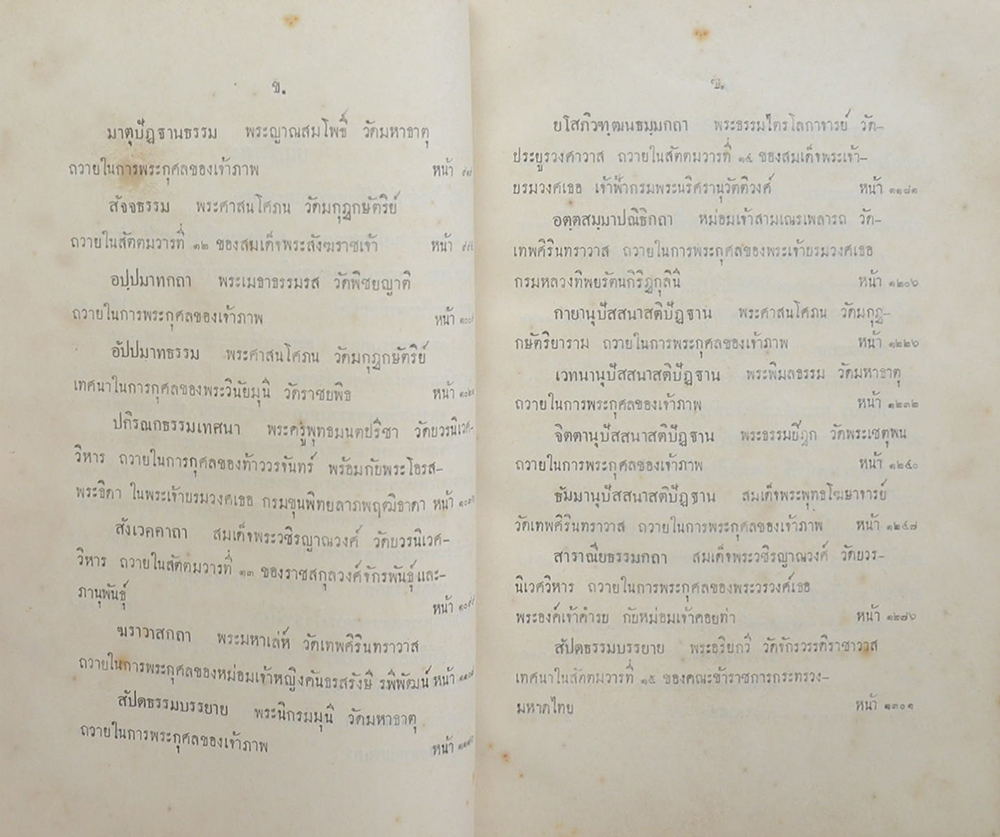 ข.
มาตุปัฏฐานธรรม พระญาณสมโพธิ์ วัดมหาธาตุ
ถวายในการพระกุศลของเจ้าภาพ หน้า
สัจจธรรม พระศาสนโศภน วัดมกุฏกษัตริย์
ถวายในสัตตมวารที่ ๑๒ ของสมเด็จพระสังฆราชเจ้า หน้า
อปฺปมาทกถา พระเมธาธรรมรส วัดพิชยญาติ
ถวายในการพระกุศลของเจ้าภาพ หน้า
อัปปมาทธรรม พระศาสนโศภน วัดมกุฏกษัตริย์
เทศนาในการกุศลของพระวินัยมุนี วัดราชบพิธ หน้า
ปกิรณกธรรมเทศนา พระครูพุทธมนตปรีชา วัดบวรนิเวศ-
วิหาร ถวายในการกุศลของท้าววรจันทร์ พร้อมกับพระโอรส-
พระธิดา ในพระเจ้าบรมวงศเธอ กรมขุนพิทยลาภพฤฒิธาดา หน้า
สังเวคคาถา สมเด็จพระวชิรญาณวงศ์ วัดบวรนิเวศ-
วิหาร ถวายในสัตตมวารที่ ๑๓ ของราชสกุลวงศ์จักรพันธุ์และ-
ภานุพันธุ์ หน้า
ฆราวาสกถา พระมหาเล่ห์ วัดเทพศิรินทราวาส
ถวายในการพระกุศลของหม่อมเจ้าหญิงคันธรสรังษี รพิพัฒน์ หน้า
สัปตธรรมบรรยาย พระนิกรมมุนี วัดมหาธาตุ
ถวายในการพระกุศลของเจ้าภาพ หน้า
ยโสภิวฑฺฒนธมฺมกถา พระธรรมไตรโลกาจารย์ วัด-
ประยูรวงศาวาส ถวายในสัตตมวารที่ ๑๔ ของสมเด็จพระเจ้า-
บรมวงศเธอ เจ้าฟ้ากรมพระนริศรานุวัดติวงศ์ หน้า ๑๑๘๑
อตฺตสมฺมาปณิธิกถา หม่อมเจ้าสามเณรเพลารถ วัด-
เทพศิรินทราวาส ถวายในการพระกุศลของพระเจ้าบรมวงศเธอ
กรมหลวงทิพยรัตนกิริฏกุลินี หน้า ๑๒๐๖
กายานุปัสสนาสติปัฏฐาน พระศาสนโศภน วัดมกุฏ-
กษัตริยาราม ถวายในการพระกุศลของเจ้าภาพ หน้า ๑๒๒๖
เวทนานุปัสสนาสติปัฏฐาน พระพิมลธรรม วัดมหาธาตุ
ถวายในการพระกุศลของเจ้าภาพ หน้า ๑๒๓๒
จิตตานุปัสสนาสติปัฏฐาน พระธรรมปิฎก วัดพระเชตุพน
ถวายในการพระกุศลของเจ้าภาพ หน้า ๑๒๔๐
ธัมมานุปัสสนาสติปัฏฐาน สมเด็จพระพุทธโฆษาจารย์
วัดเทพศิรินทราวาส ถวายในการพระกุศลของเจ้าภาพ หน้า ๑๒๔๗
สาราณียธรรมกถา สมเด็จพระวชิรญาณวงศ์ วัดบวร-
นิเวศวิหาร ถวายในการพระกุศลของพระวรวงศ์เธอ
พระองค์เจ้าคำรบ กับหม่อมเจ้าคอยท่า หน้า ๑๒๗๖
สัปตธรรมบรรยาย พระอริยกวี วัดจักรวรรดิราชาวาส
เทศนาในสัตตมวารที่ ๑๕ ของคณะข้าราชการกระทรวง-
มหาดไทย หน้า ๑๓๐๑